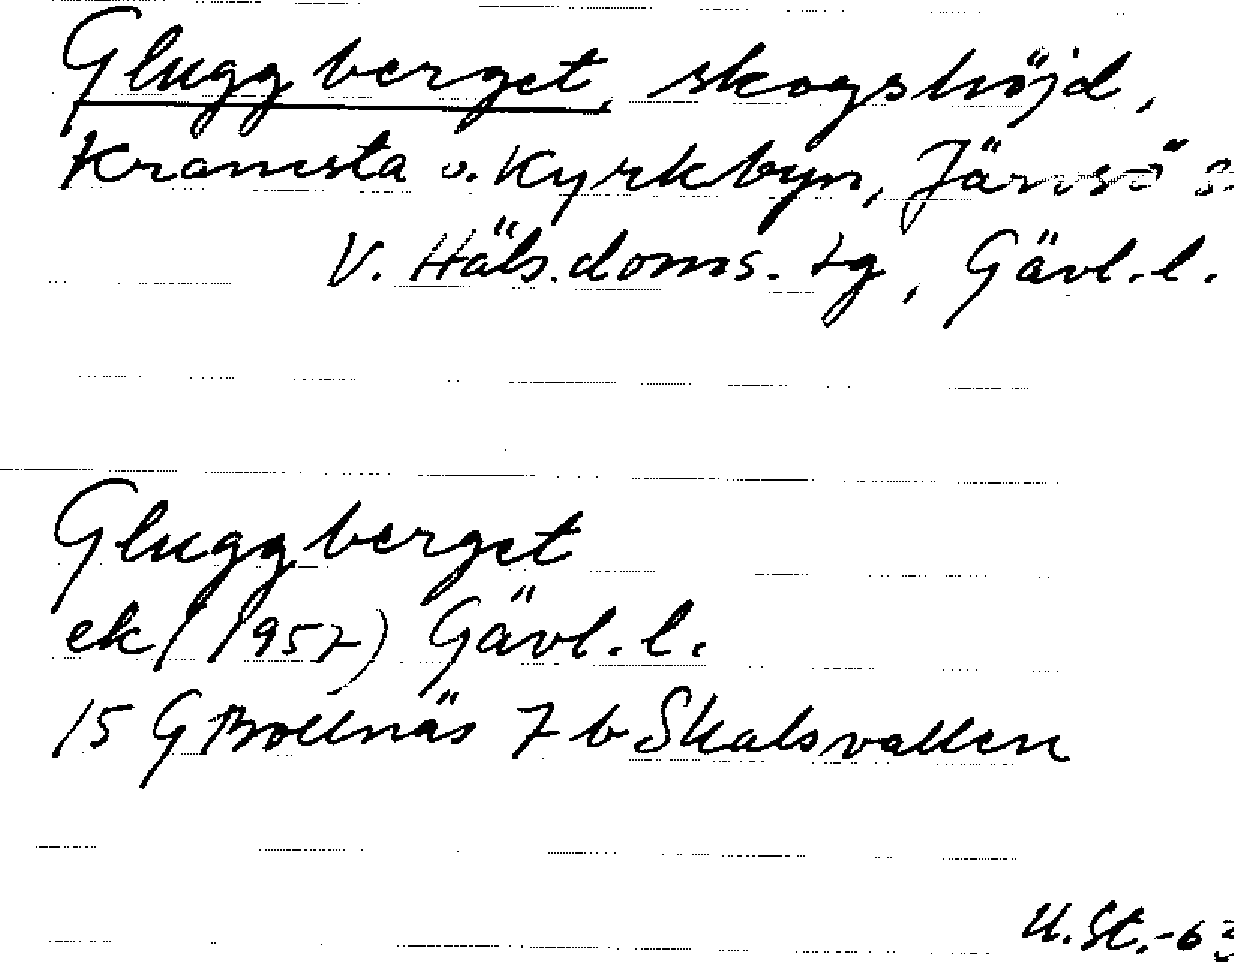 Gluggberget, skogshöjd,
Kramsta o. Kyrkbyn, Järvsö s
V. Häls. doms. tg, Gävl. l.
Gluggberget
ek (1957) Gävl. l.
15 G Bollnäs 7 b Skålsvallen
U. St. -63